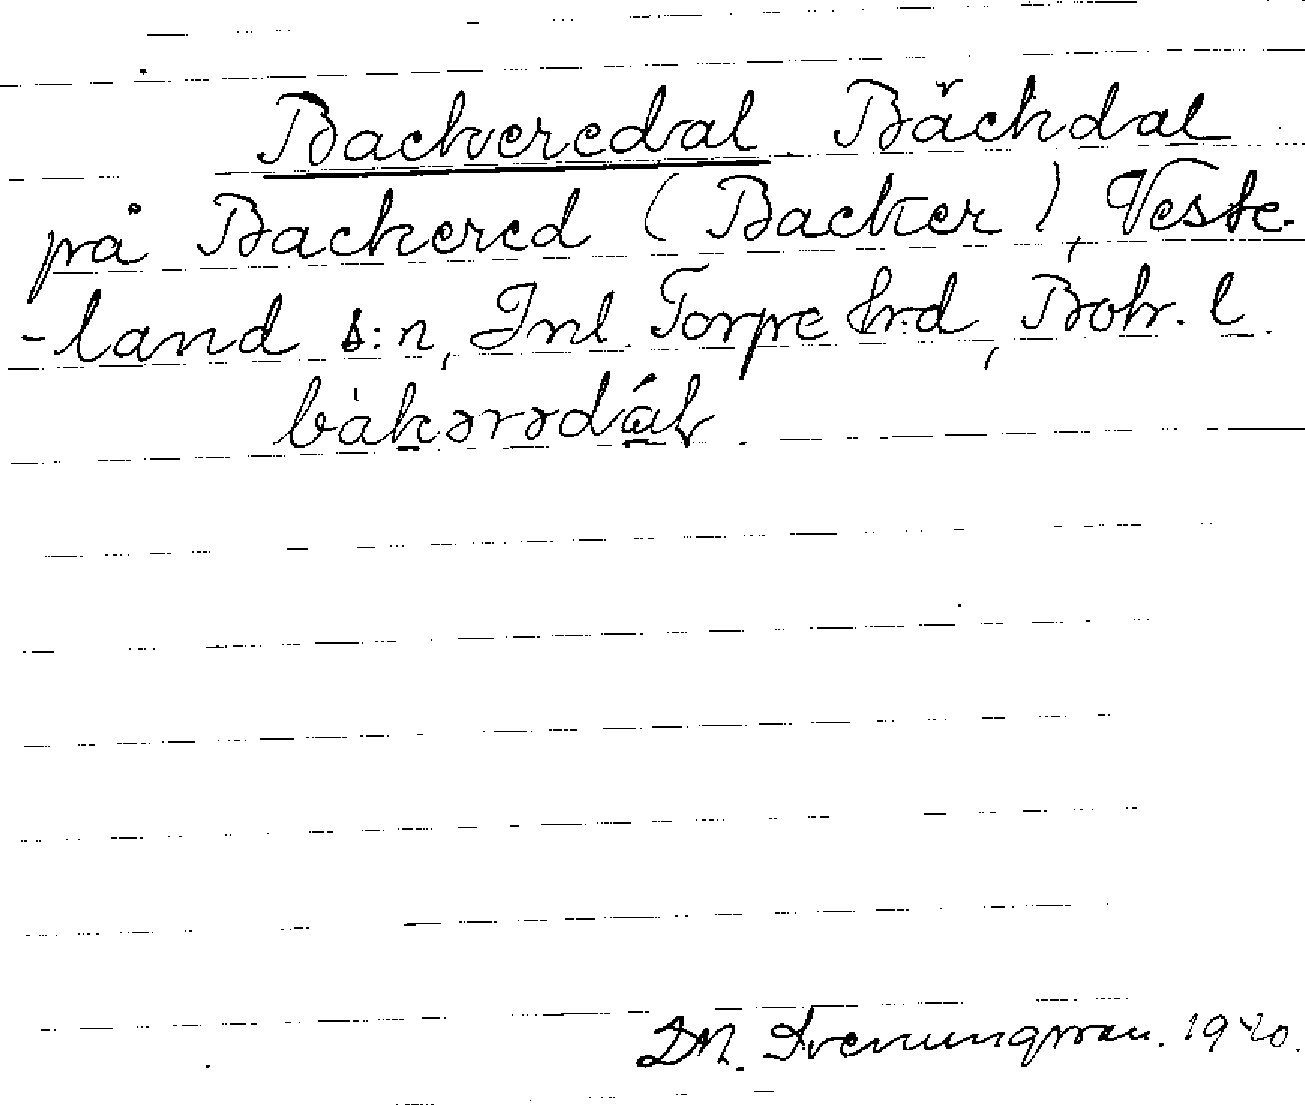 Backeredal. Bäckdal
på Backered (Backer), Veste-
-land s:n, Inl. Torpe hrd, Boh. l.
bàkərədál.
D.N. Svenungsson. 1920.